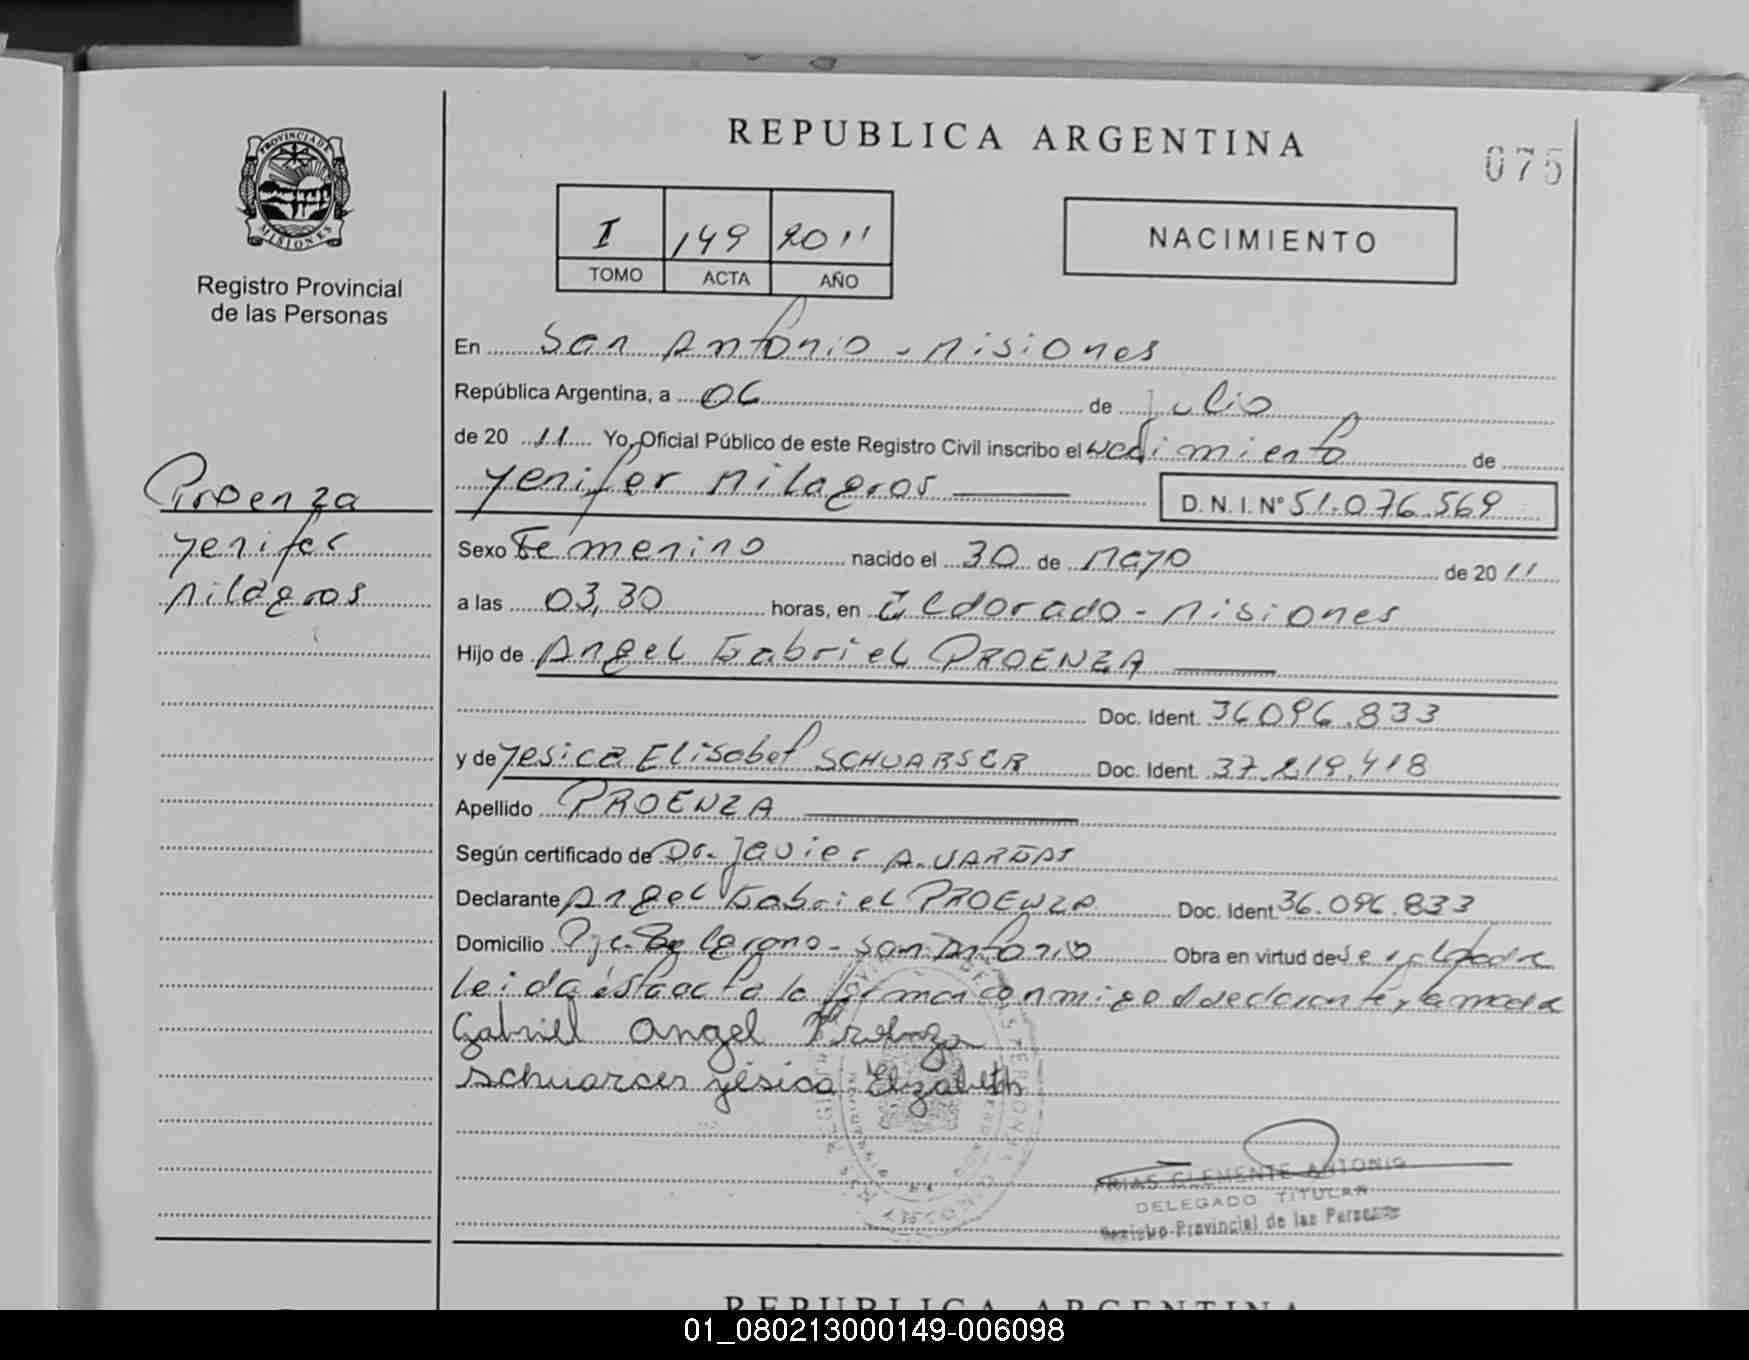 REPUBLICA ARGENTINA
075
PROVINCIA DE
MISIONES
Registro Provincial
de las Personas
I 149 2011
TOMO ACTA AÑO
NACIMIENTO
En San Antonio - Misiones
República Argentina, a 06 de Julio
de 20 11 Yo, Oficial Público de este Registro Civil inscribo el nacimiento de
Yenifer Milagros D. N. I. Nº 51.076.569
Proenza
Yenifer
Milagros
Sexo Femenino nacido el 30 de Mayo de 20 11
a las 03,30 horas, en Eldorado - Misiones
Hijo de Angel Gabriel PROENZA
Doc. Ident. 36096.833
y de Yesica Elisabet SCHUARSER Doc. Ident. 37.219.418
Apellido PROENZA
Según certificado de Dr. Javier A. VARGAS
Declarante Angel Gabriel PROENZA Doc. Ident. 36.096.833
Domicilio San Antonio Obra en virtud de ser el padre
Leida ésta acta la firman conmigo el declarante y la madre
Gabriel Angel Proenza
Schuarcer yésica Elizabeth
ARIAS CLEMENTE ANTONIO
DELEGADO TITULAR
Registro Provincial de las Personas
REPUBLICA ARGENTINA
01_080213000149-006098